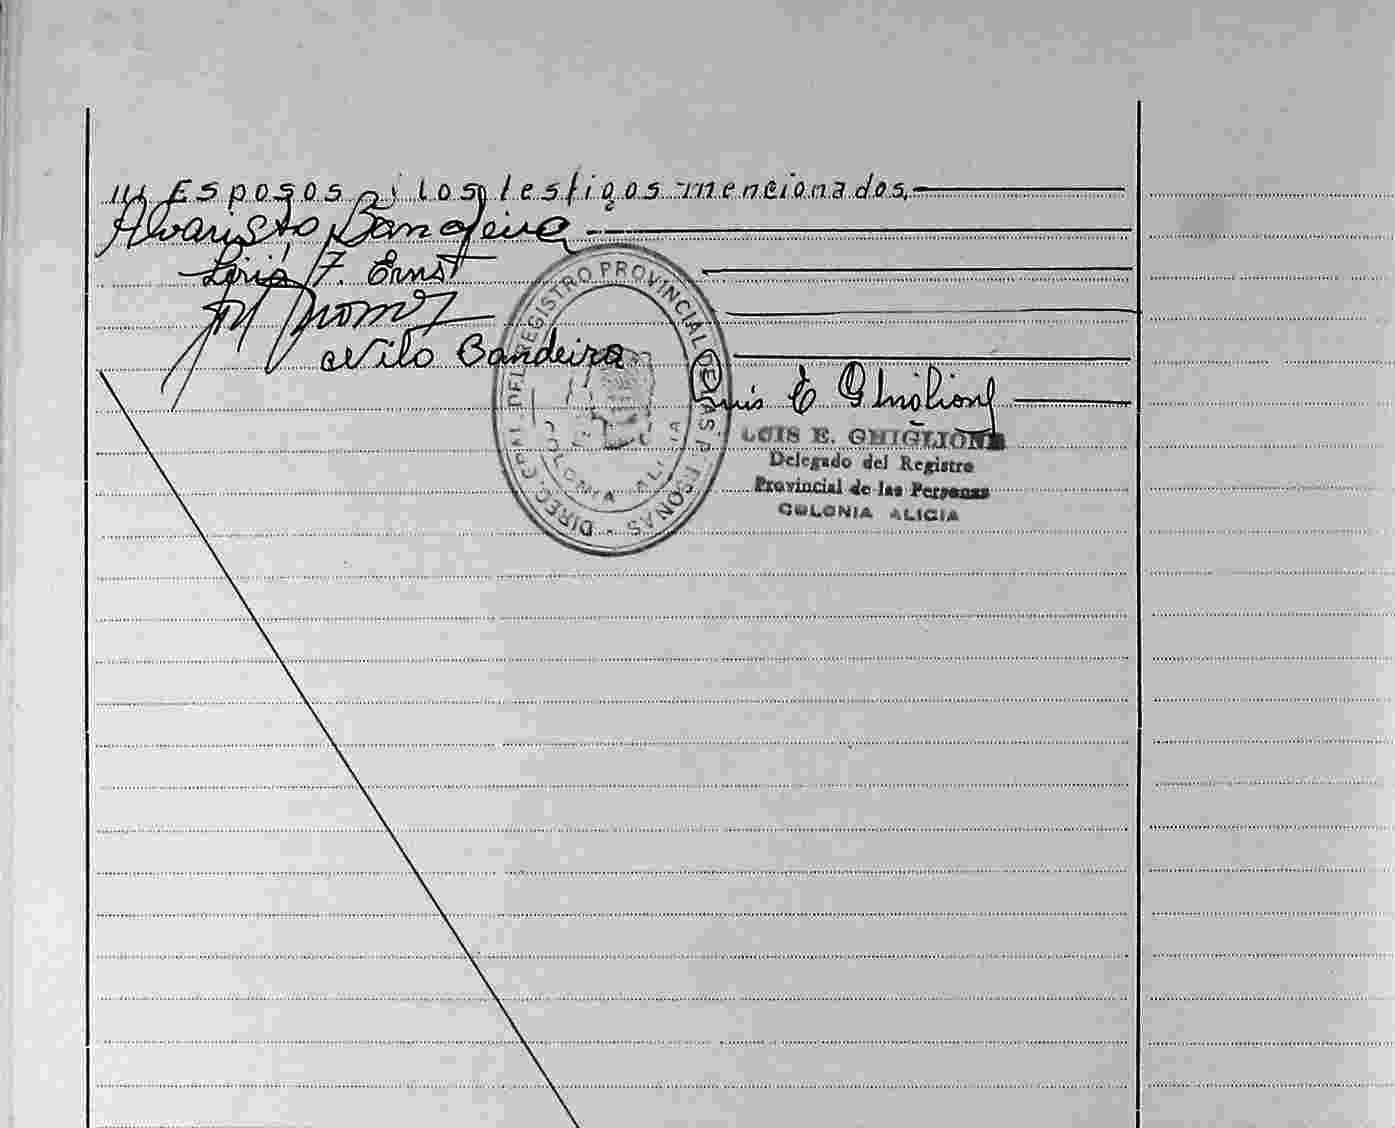 Esposos i los testigos mencionados.
Alvaristo Bandeira
F. Ernst
Nilo Bandeira
Luis E Ghiglione
LUIS E. GHIGLIONE
Delegado del Registro
Provincial de las Personas
COLONIA ALICIA
DIREC. GRAL. DEL REGISTRO PROVINCIAL DE LAS PERSONAS -
COLONIA ALICIA